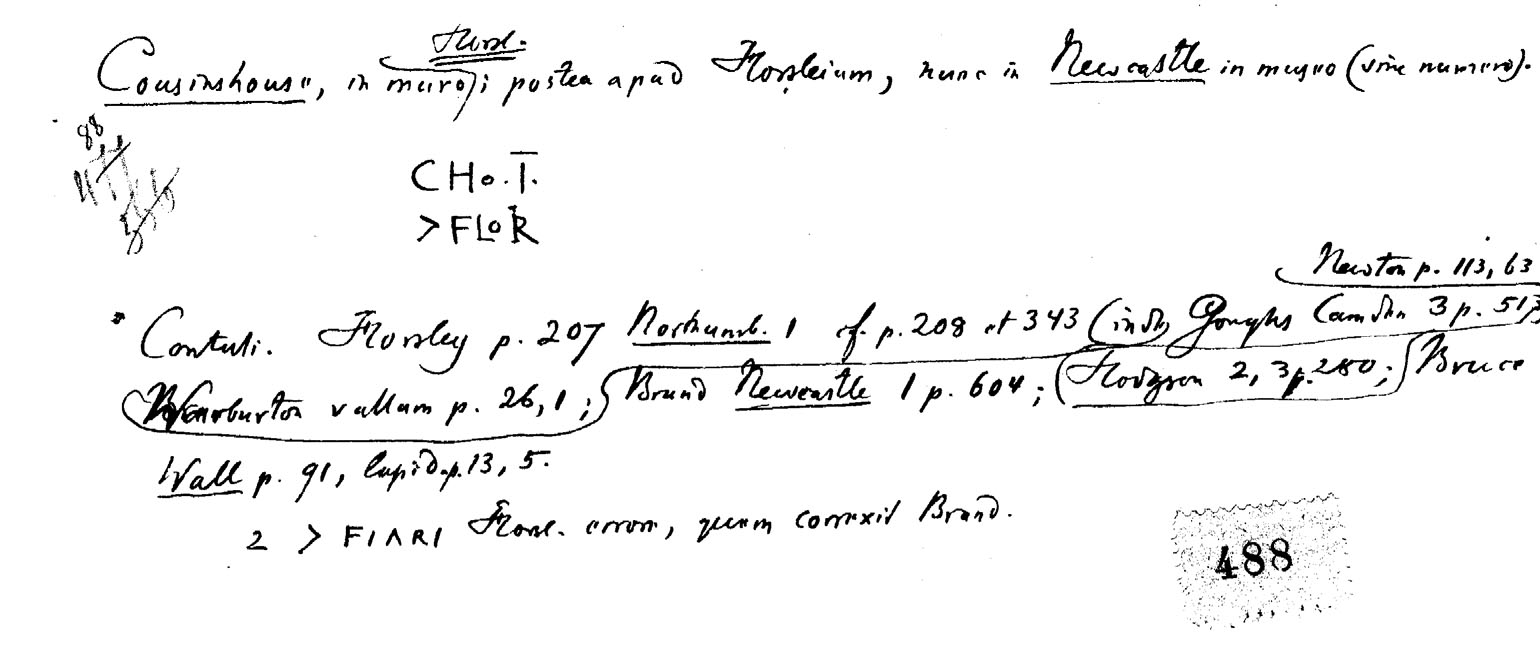 Horsl.
Cousinshouse, in muro); postea apud Horsleium, nunc in Newcastle in museo (sine numero).
88
CHo.T̅.
>FLoR
Newton p. 113, 63
* Contuli. Horsley p. 207 Northumb. 1 cf. p. 208 et 343 (inde Goughs Camden 3 p. 513,
Warburton vallum p. 26, 1; Brand Newcastle 1 p. 604; (Hodgson 2, 3 p. 280; Bruce
Wall p. 91, lapid. p. 13, 5.
2 > FIARI Horsl. errore, quem correxit Brand.
488